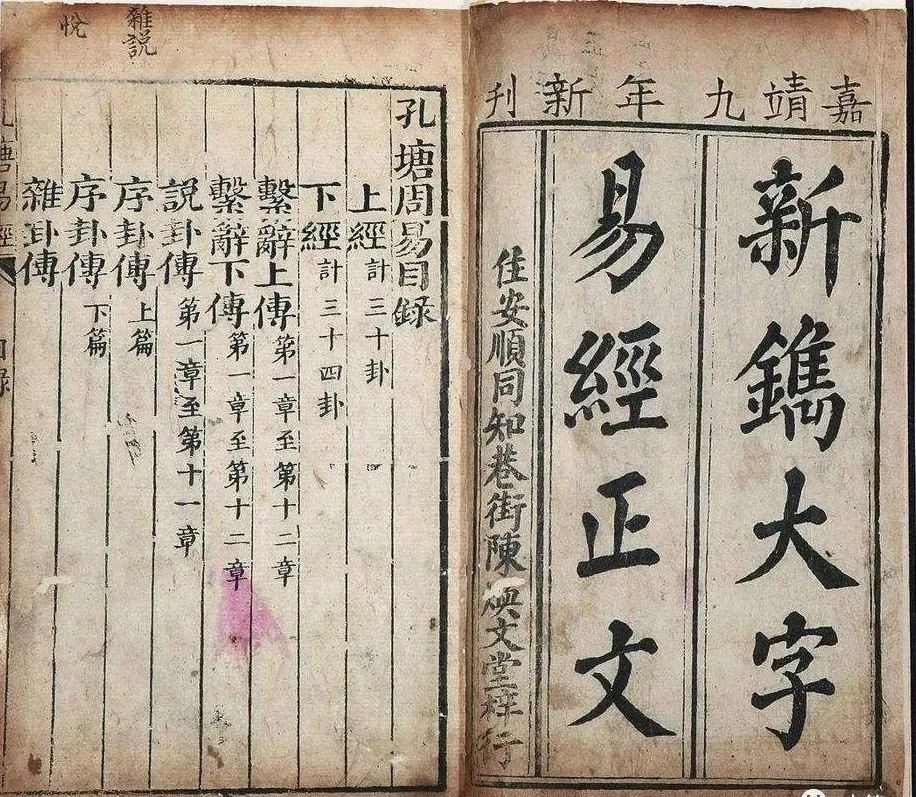 嘉靖九年新刊
新鐫大字
易經正文
住安順同知巷街陳文堂梓行
雜説
悅
孔塘周易目錄
上經 計三十卦
下經 計三十四卦
繫辭上傳 第一章至第十二章
繫辭下傳 第一章至第十二章
説卦傳 第一章至第十一章
序卦傳 上篇
序卦傳 下篇
雜卦傳